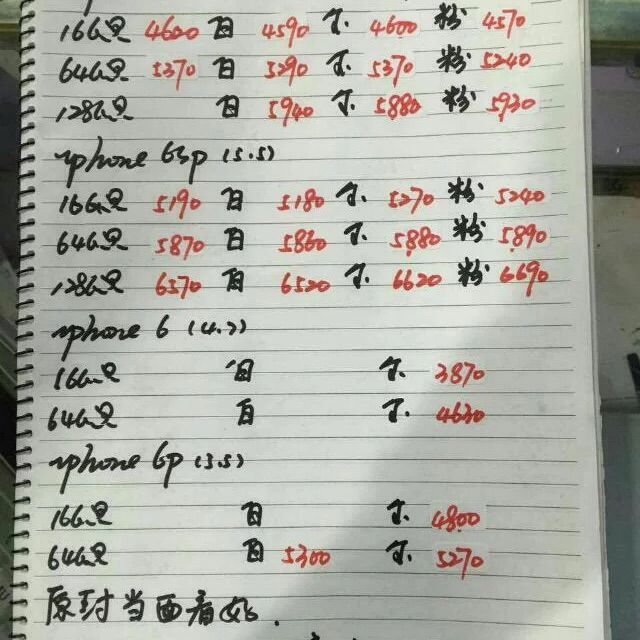 16G黑 4600 白 4590 金 4600 粉 4570
64G黑 5370 白 5290 金 5370 粉 5240
128G黑 白 5940 金 5880 粉 5930
iphone 6sp (5.5)
16G黑 5190 白 5180 金 5270 粉 5240
64G黑 5870 白 5860 金 5880 粉 5890
128G黑 6570 白 6520 金 6620 粉 6690
iphone 6 (4.7)
16G黑 白 金 3870
64G黑 白 金 4630
iphone 6p (5.5)
16G黑 白 金 4800
64G黑 白 5300 金 5270
原封当面看好.